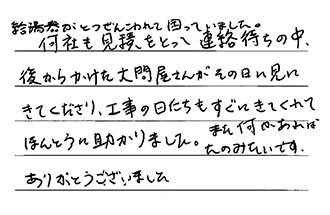 給湯器がとつぜんこわれて困っていました。
何社も見積をとって連絡待ちの中、
後からかけた大問屋さんがその日に見に
きてくださり、工事の日にちもすぐにきてくれて
ほんとうに助かりました。また何かあれば
たのみたいです。
ありがとうございました